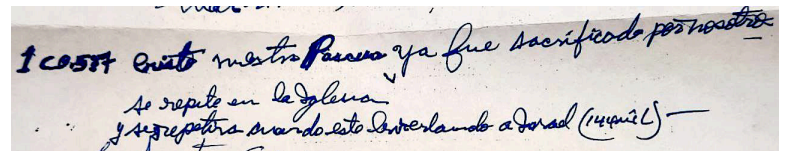 1 CO 5:7 Cristo nuestra Pascua ya fue sacrificada por nosotros
se repite en la Iglesia
y se repetira cuando este a Israel (144 mil) —